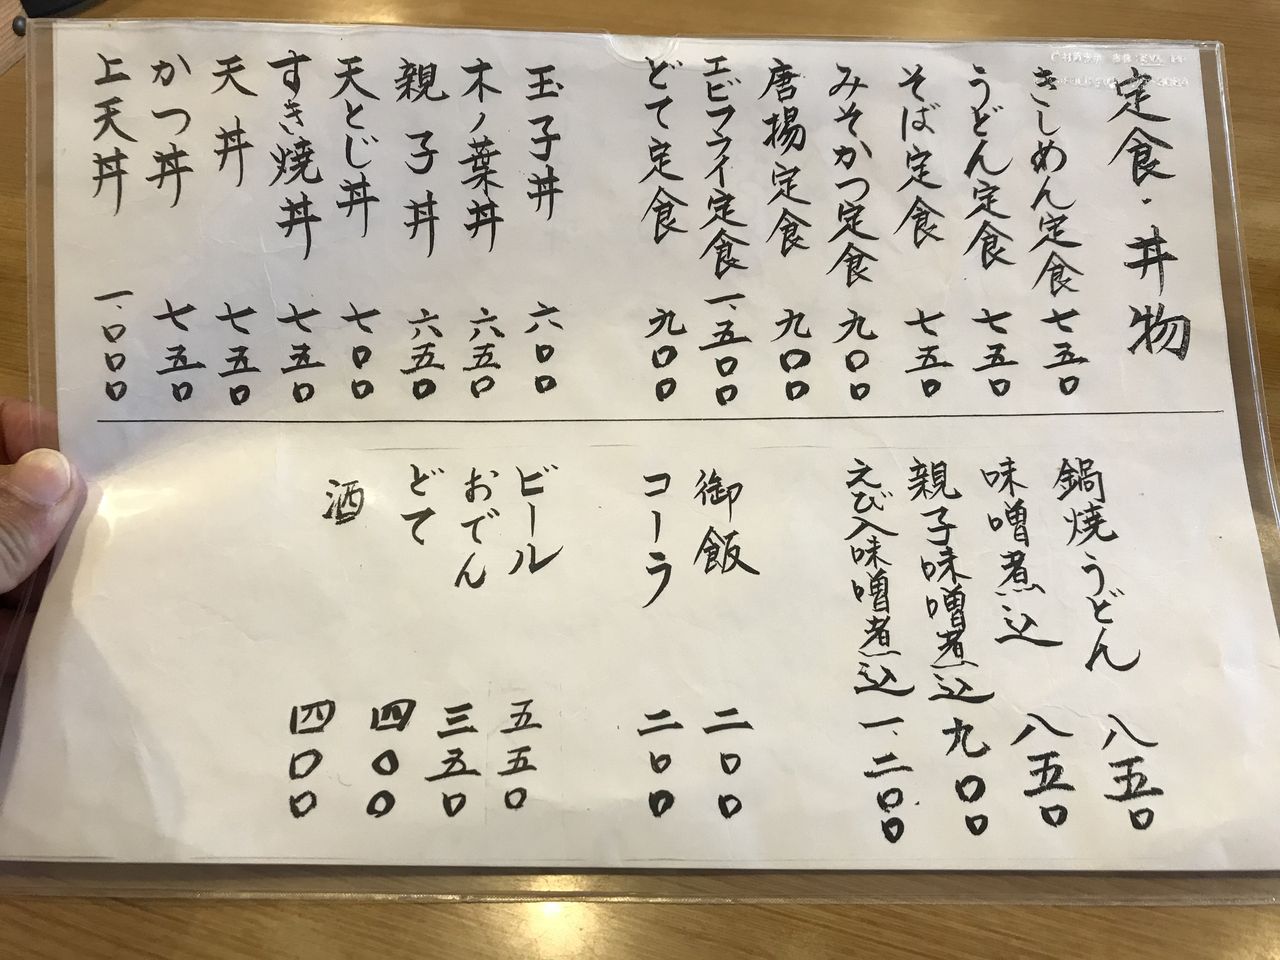 定食・丼物
きしめん定食 七五〇
うどん定食 七五〇
そば定食 七五〇
みそかつ定食 九〇〇
唐揚定食 九〇〇
エビフライ定食 一、五〇〇
どて定食 九〇〇
玉子丼 六〇〇
木ノ葉丼 六五〇
親子丼 六五〇
天とじ丼 七〇〇
すき焼丼 七五〇
天丼 七五〇
かつ丼 七五〇
上天丼 一、〇〇〇
鍋焼うどん 八五〇
味噌煮込 八五〇
親子味噌煮込 九〇〇
えび入味噌煮込 一、二〇〇
御飯 二〇〇
コーラ 二〇〇
ビール 五五〇
おでん 三五〇
どて 四〇〇
酒 四〇〇